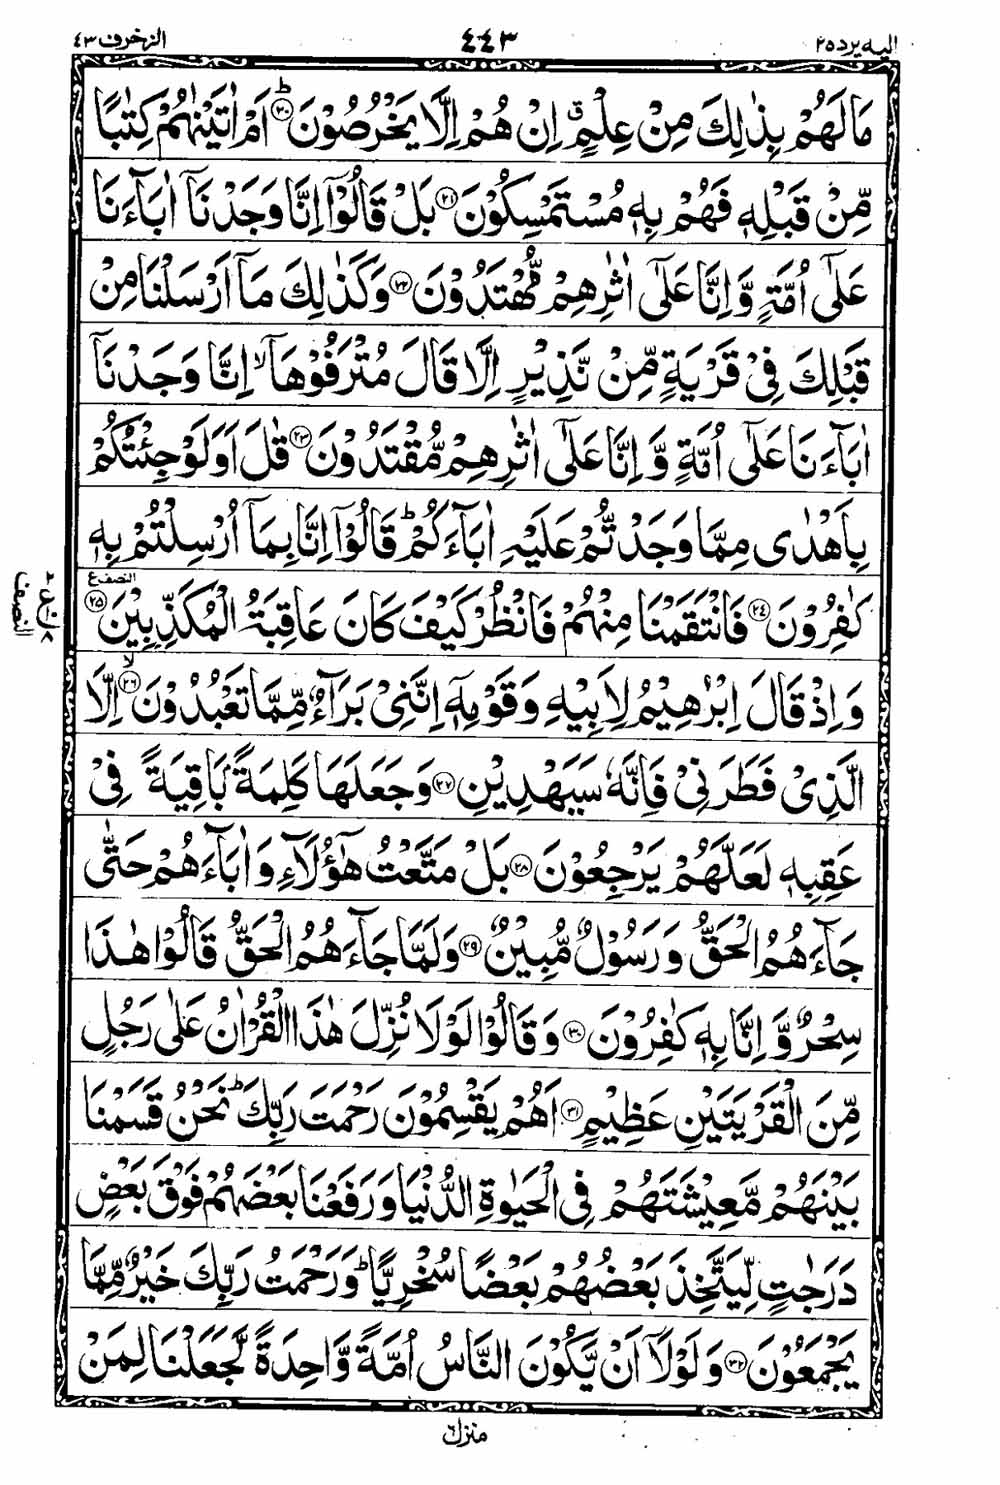 اليه يرد ٢٥
٤٤٣
الزخرف ٤٣
مَا لَهُمْ بِذٰلِكَ مِنْ عِلْمٍ ۗ اِنْ هُمْ اِلَّا يَخْرُصُوْنَ ؕ‏﴿۲۰﴾ اَمْ اٰتَيْنٰهُمْ كِتٰبًا
مِّنْ قَبْلِهٖ فَهُمْ بِهٖ مُسْتَمْسِكُوْنَ ﴿۲۱﴾ بَلْ قَالُوْۤا اِنَّا وَجَدْنَاۤ اٰبَآءَنَا
عَلٰٓى اُمَّةٍ وَّ اِنَّا عَلٰٓى اٰثٰرِهِمْ مُّهْتَدُوْنَ ﴿۲۲﴾ وَ كَذٰلِكَ مَاۤ اَرْسَلْنَا مِنْ
قَبْلِكَ فِىْ قَرْيَةٍ مِّنْ نَّذِيْرٍ اِلَّا قَالَ مُتْرَفُوْهَاۤ ۙ اِنَّا وَجَدْنَاۤ
اٰبَآءَنَا عَلٰٓى اُمَّةٍ وَّ اِنَّا عَلٰٓى اٰثٰرِهِمْ مُّقْتَدُوْنَ ﴿۲۳﴾ قٰلَ اَوَلَوْ جِئْتُكُمْ
بِاَهْدٰى مِمَّا وَجَدْتُّمْ عَلَيْهِ اٰبَآءَكُمْ ؕ قَالُوْۤا اِنَّا بِمَاۤ اُرْسِلْتُمْ بِهٖ
كٰفِرُوْنَ ﴿۲٤﴾ فَانْتَقَمْنَا مِنْهُمْ فَانْظُرْ كَيْفَ كَانَ عَاقِبَةُ الْمُكَذِّبِيْنَ ﴿۲۵﴾ النصف ع
وَ اِذْ قَالَ اِبْرٰهِيْمُ لِاَبِيْهِ وَ قَوْمِهٖۤ اِنَّنِىْ بَرَآءٌ مِّمَّا تَعْبُدُوْنَ ۙ‏﴿۲۶﴾ اِلَّا
الَّذِىْ فَطَرَنِىْ فَاِنَّهٗ سَيَهْدِيْنِ ﴿۲۷﴾ وَ جَعَلَهَا كَلِمَةً ۢ بَاقِيَةً فِىْ
عَقِبِهٖ لَعَلَّهُمْ يَرْجِعُوْنَ ﴿۲۸﴾ بَلْ مَتَّعْتُ هٰٓؤُلَآءِ وَ اٰبَآءَهُمْ حَتّٰى
جَآءَهُمُ الْحَقُّ وَ رَسُوْلٌ مُّبِيْنٌ ﴿۲۹﴾ وَ لَمَّا جَآءَهُمُ الْحَقُّ قَالُوْا هٰذَا
سِحْرٌ وَّ اِنَّا بِهٖ كٰفِرُوْنَ ﴿۳۰﴾ وَ قَالُوْا لَوْلَا نُزِّلَ هٰذَا الْقُرْاٰنُ عَلٰى رَجُلٍ
مِّنَ الْقَرْيَتَيْنِ عَظِيْمٍ ﴿۳۱﴾ اَهُمْ يَقْسِمُوْنَ رَحْمَتَ رَبِّكَ ؕ نَحْنُ قَسَمْنَا
بَيْنَهُمْ مَّعِيْشَتَهُمْ فِى الْحَيٰوةِ الدُّنْيَا وَ رَفَعْنَا بَعْضَهُمْ فَوْقَ بَعْضٍ
دَرَجٰتٍ لِّيَتَّخِذَ بَعْضُهُمْ بَعْضًا سُخْرِيًّا ؕ وَ رَحْمَتُ رَبِّكَ خَيْرٌ مِّمَّا
يَجْمَعُوْنَ ﴿۳۲﴾ وَ لَوْلَاۤ اَنْ يَّكُوْنَ النَّاسُ اُمَّةً وَّاحِدَةً لَّجَعَلْنَا لِمَنْ
النصف
منزل ٦